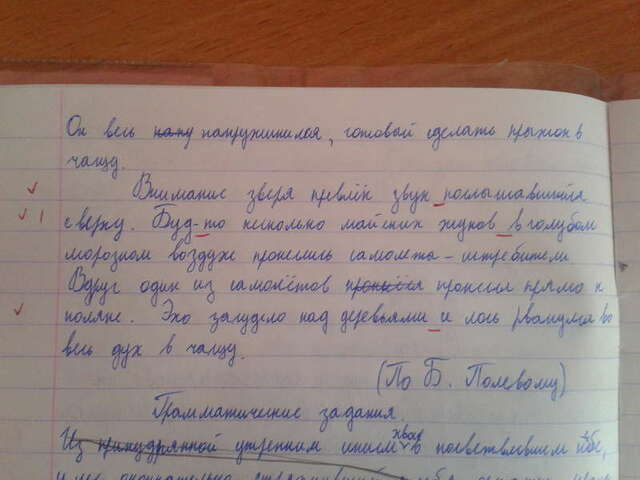 Он весь напружинился, готовый сделать прыжок в
чащу.
Внимание зверя превлёк звук послышавшийся
с верху. Буд-то несколько майских жуков в голубом
морозном воздухе пронеслись самолёты - истребители
Вдруг один из самолётов пронёсся прямо к
поляне. Эхо загудело над деревьями и лось рванулся во
весь дух в чащу.
(По Б. Полевому)
Грамматические задания.
Из утренним инеем в посветлевшем небе,